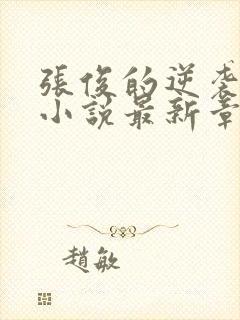 張俊的逆袭
小説最新章
趙敏